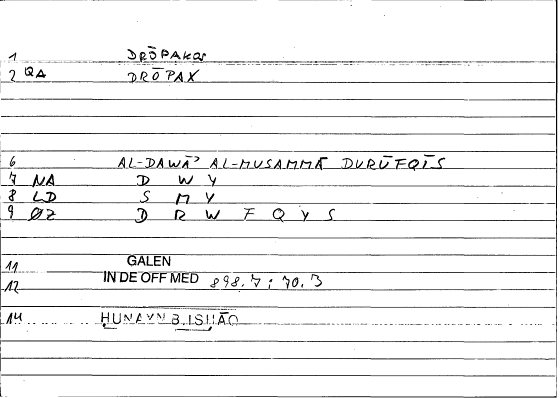 1 DRŌPAKOS
2 QA DRŌPAX
6 AL-DAWĀʾ AL-MUSAMMĀ DURŪFQĪS
7 NA D W Y
8 LD S M Y
9 ØZ D R W F Q Y S
11 GALEN
12 IN DE OFF MED 898.7 ; 70.3
14 HUNAYN B. ISHĀQ